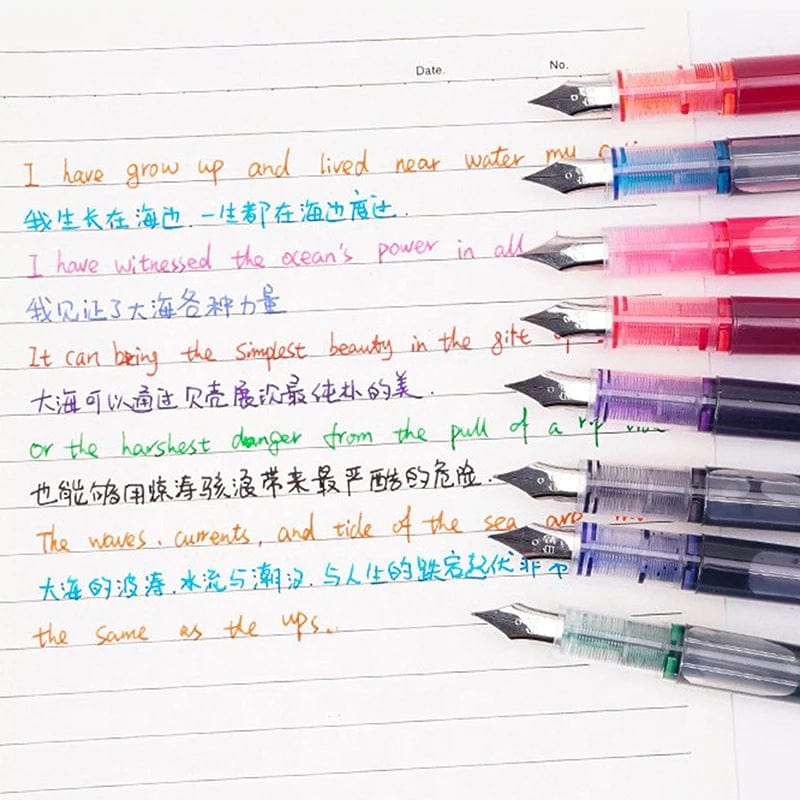 Date. No.
I have grow up and lived near water my
我生长在海边.一生都在海边度过.
I have witnessed the ocean's power in all
我见证了大海各种力量
It can bring the simplest beauty in the gift
大海可以通过贝壳展次最纯朴的美.
or the harshest danger from the pull of a rip
也能够用惊涛骇浪带来最严酷的危险.
The waves. currents, and tide of the sea are
大海的波涛.水流与潮汐.与人生的跌宕起伏非
the same as the ups.